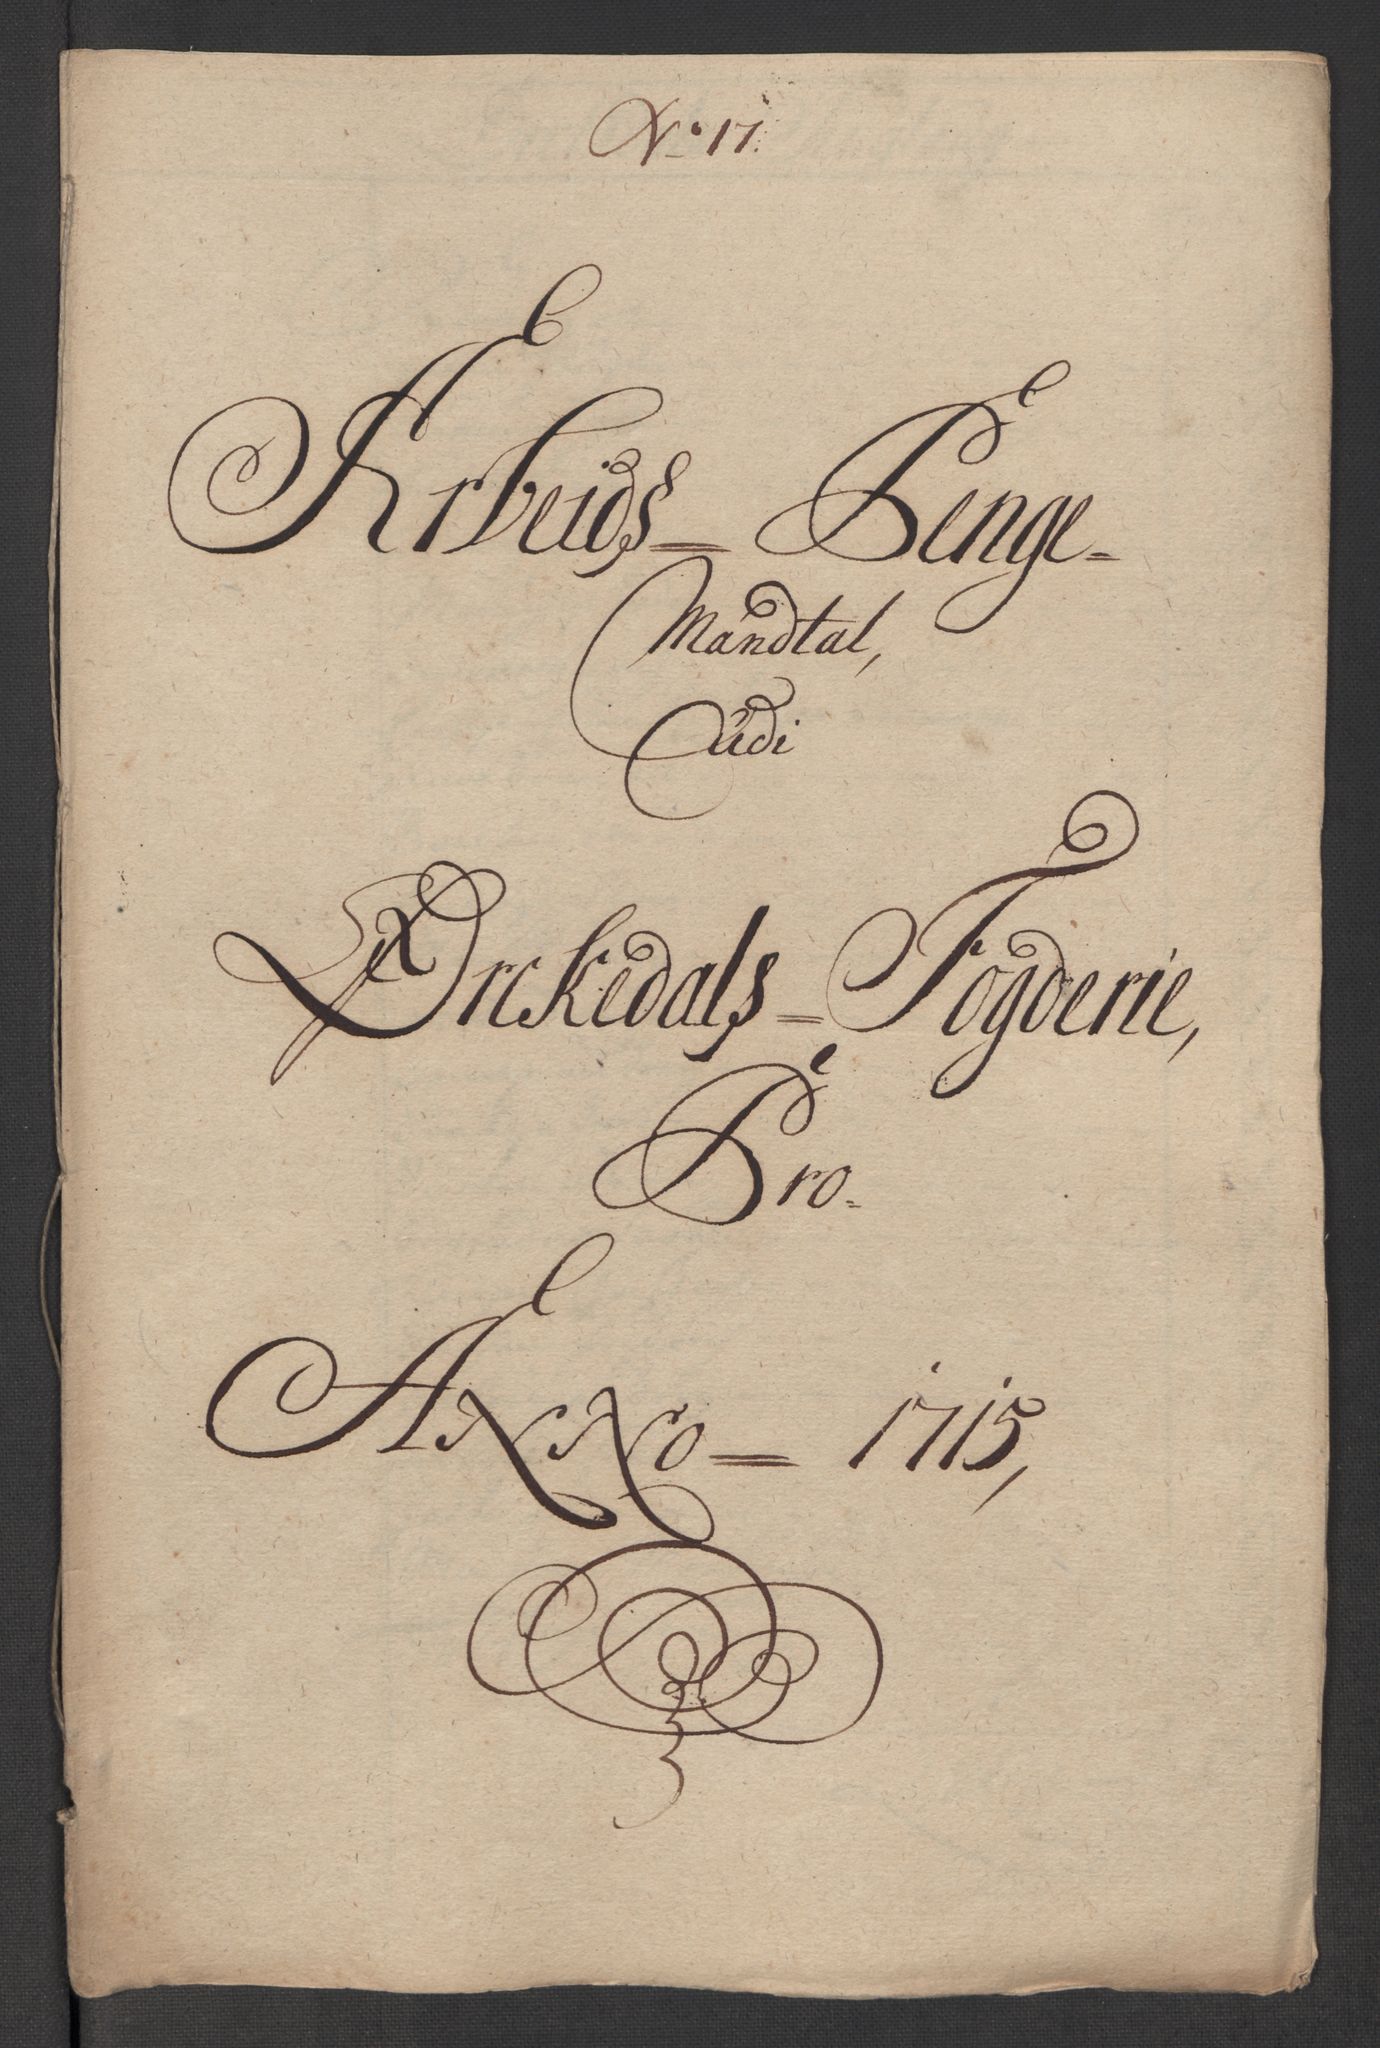 No 17.
Arbeids= Penge=
Mandtal,
Udi
Orckedals= Fogderie,
Pro=
ANNo= 1715,